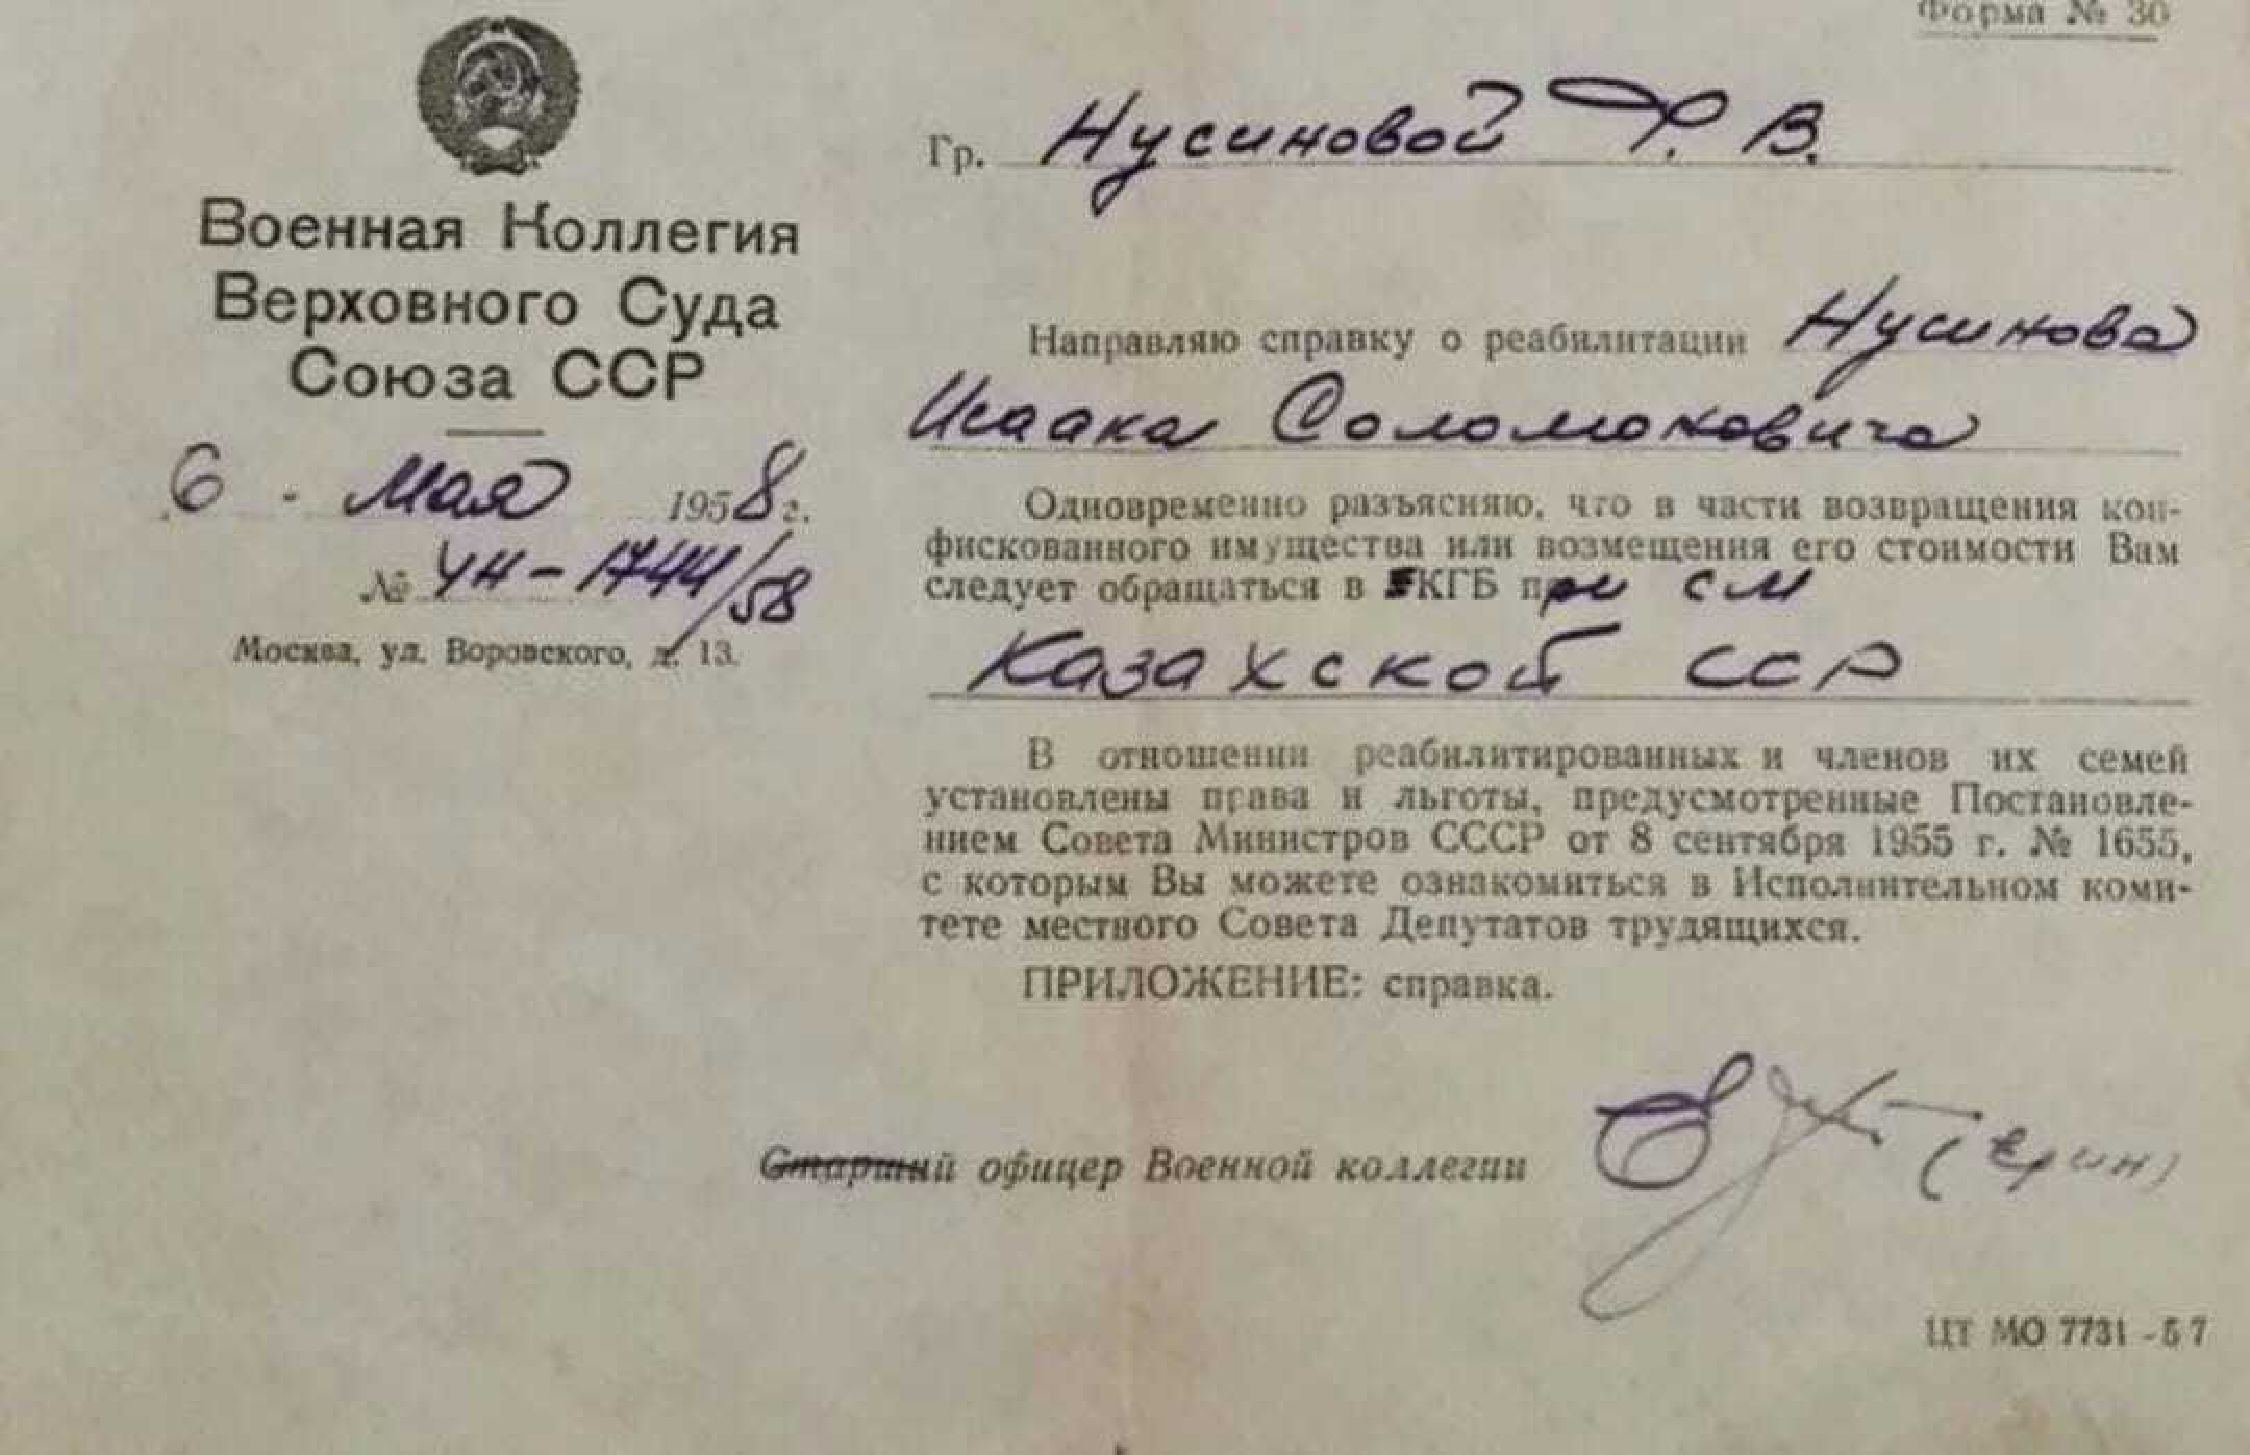 Форма № 30
Военная Коллегия
Верховного Суда
Союза ССР
6 - Мая 1958 г.
№ 4н-1744/58
Москва, ул. Воровского, д. 13.
Гр. Нусиновой Ф. В.
Направляю справку о реабилитации Нусинова
Исаака Соломоновича
Одновременно разъясняю, что в части возвращения кон-
фискованного имущества или возмещения его стоимости Вам
следует обращаться в КГБ при СМ
Казахской ССР
В отношении реабилитированных и членов их семей
установлены права и льготы, предусмотренные Постановле-
нием Совета Министров СССР от 8 сентября 1955 г. № 1655,
с которым Вы можете ознакомиться в Исполнительном коми-
тете местного Совета Депутатов трудящихся.
ПРИЛОЖЕНИЕ: справка.
Старший офицер Военной коллегии
ЦТ МО 7731-57